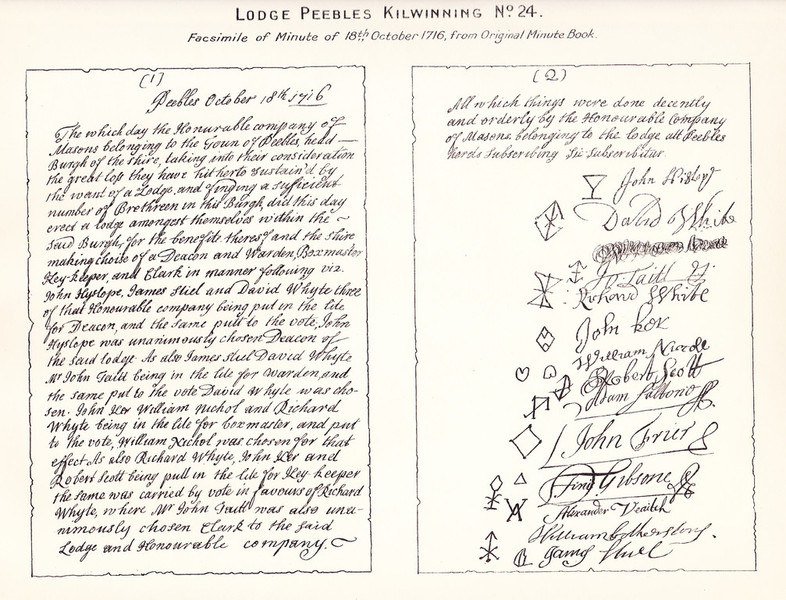 LODGE PEEBLES KILWINNING No. 24.
Facsimile of Minute of 18th October 1716, from Original Minute Book.
(1)
Peebles October 18th 1716
The which day the Honurable company of
Masons belonging to the Toun of Peebles, head
Burgh of the shire, taking into their consideration
the great loss they have hitherto sustain'd by
the want of a Lodge, and finding a sufficient
number of Brethreen in this Burgh, did this day
erect a lodge amongst themselves within the
said Burgh, for the benefite thereof and the shire
making choise of a Deacon and Warden, Boxmaster
Key-keeper, and Clark in manner following viz.
John Hyslope, James Stiel and David Whyte three
of that Honourable company being put in the lite
for Deacon, and the same putt to the vote, John
Hyslope was unanimously chosen Deacon of
the said lodge. As also James Stiel David Whyte
Mr John Taitt being in the lite for Warden, and
the same put to the vote David Whyte was cho-
sen. John Ker William Nichol and Richard
Whyte being in the lite for boxmaster, and put
to the vote, William Nichol was chosen for that
effect. As also Richard Whyte, John Ker and
Robert Scott being putt in the lite for Key-keeper
the same was carried by vote in favours of Richard
Whyte, where Mr John Taitt was also una-
nimously chosen Clark to the said
Lodge and Honourable company.
(2)
All which things were done decently
and orderly by the Honourable Company
of Masons belonging to the lodge att Peebles
Subscribing Sic Subscribitur
John
David White
Jo. Taitt
Richard White
John Ker
William
Robert Scott
Adam
John Frier
Gibsone
Alexander Veaitch
William